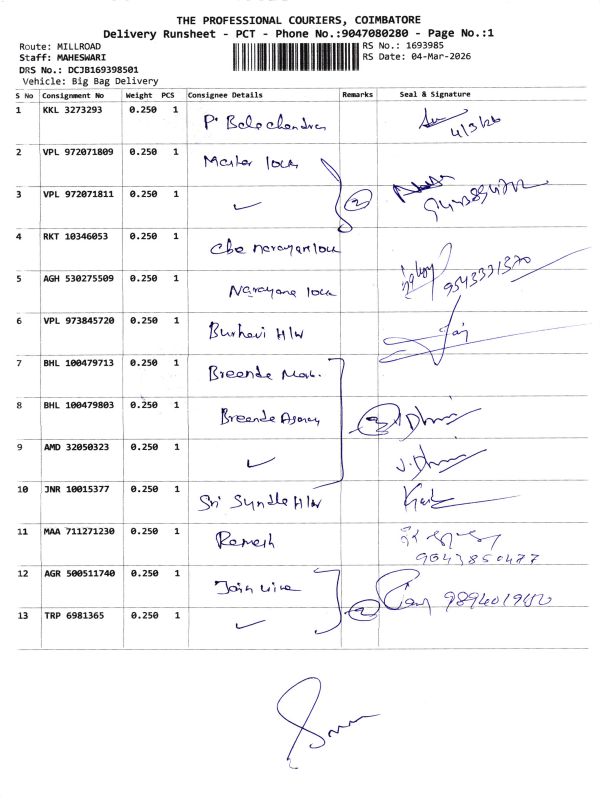 THE PROFESSIONAL COURIERS, COIMBATORE
Delivery Runsheet - PCT - Phone No.:9047080280 - Page No.:1
Route: MILLROAD RS No.: 1693985
Staff: MAHESWARI RS Date: 04-Mar-2026
DRS No.: DCJB169398501
Vehicle: Big Bag Delivery
S No Consignment No Weight PCS Consignee Details Remarks Seal & Signature
1 KKL 3273293 0.250 1 P. Balachandran 4/3/26
2 VPL 972071809 0.250 1 Master lock
3 VPL 972071811 0.250 1 ✓ 2
4 RKT 10346053 0.250 1 Cbe narayan lock
5 AGH 530275509 0.250 1 Narayana lock 9543331370
6 VPL 973845720 0.250 1 H/W
7 BHL 100479713 0.250 1 Breende
8 BHL 100479803 0.250 1 Breende Agency
9 AMD 32050323 0.250 1 ✓
10 JNR 10015377 0.250 1 Sri H/W
11 MAA 711271230 0.250 1 Ramesh 9043850477
12 AGR 500511740 0.250 1 Join
13 TRP 6981365 0.250 1 ✓ 2